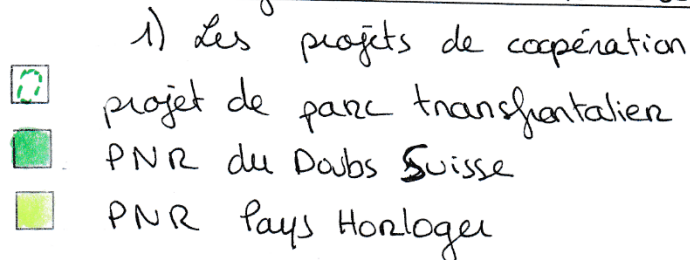 1) Les projets de coopération
projet de parc transfrontalier
PNR du Doubs Suisse
PNR Pays Horloger